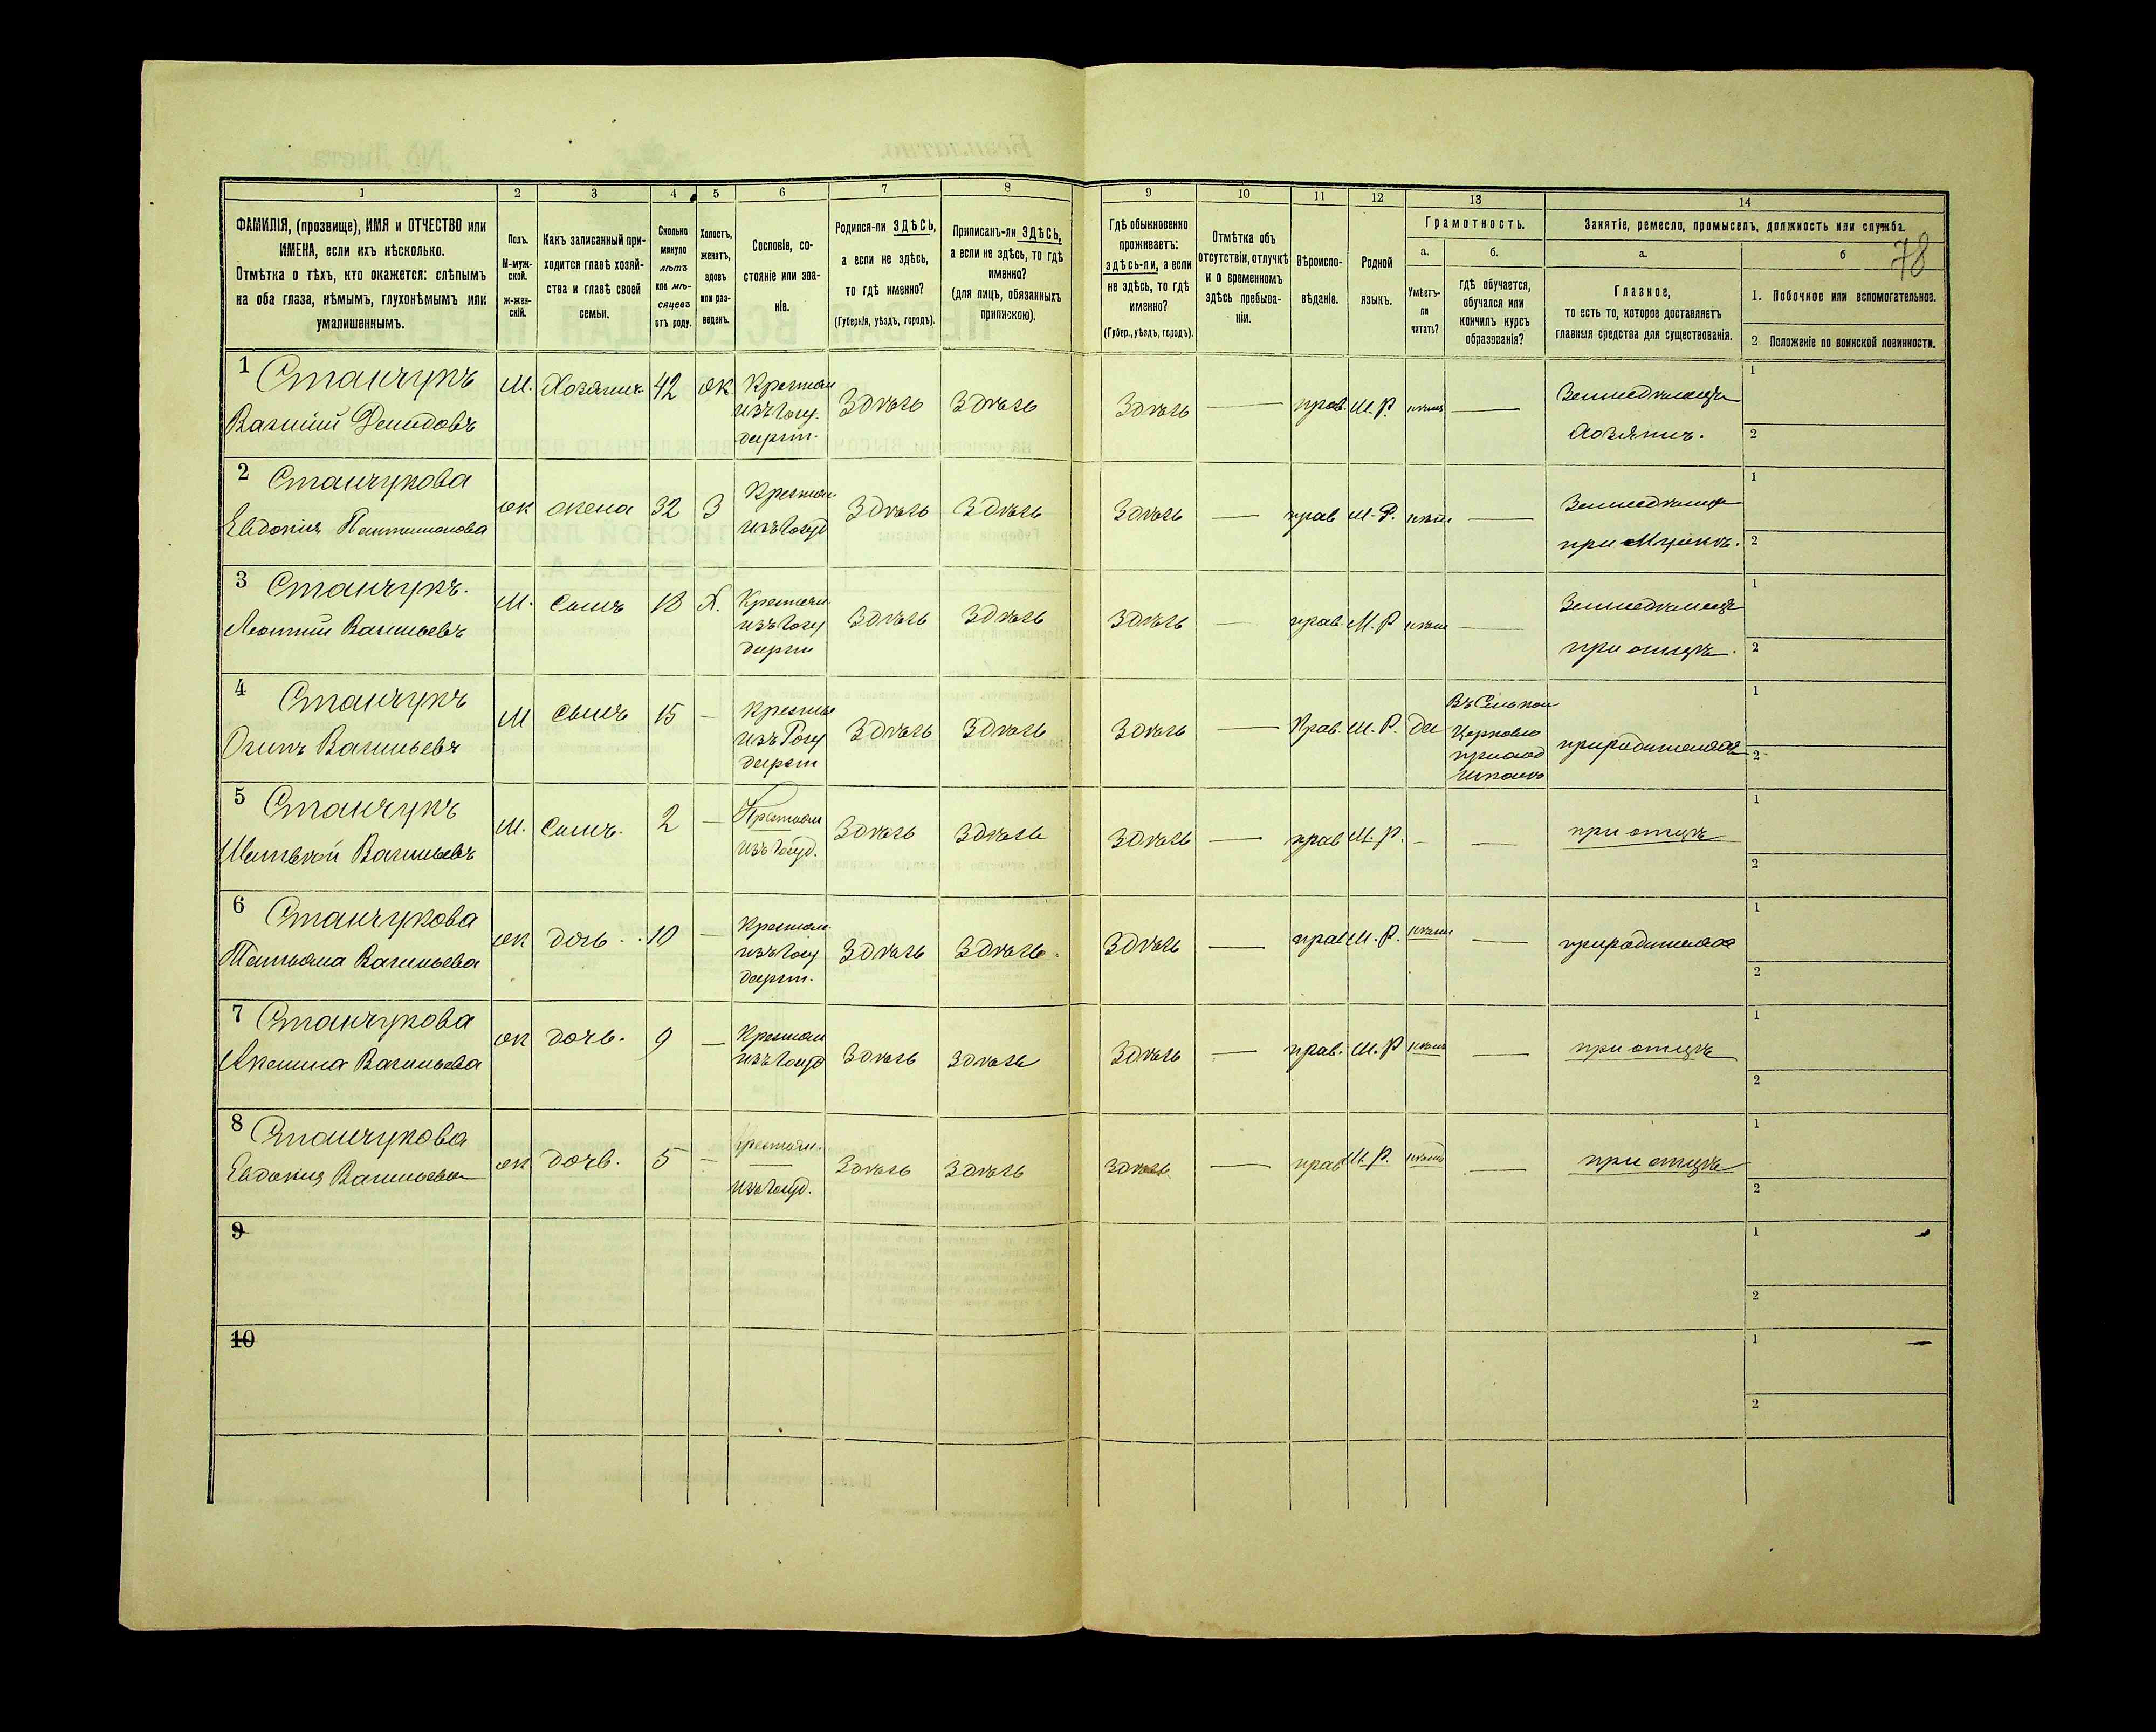 1 2 3 4 5 6 7 8 9 10 11 12 13 14
ФАМИЛІЯ, (прозвище), ИМЯ и ОТЧЕСТВО или
ИМЕНА, если ихъ нѣсколько.
Отмѣтка о тѣхъ, кто окажется: слѣпымъ
на оба глаза, нѣмымъ, глухонѣмымъ или
умалишеннымъ.
Полъ.
М-муж-
ской.
ж-жен-
скій.
Какъ записанный при-
ходится главѣ хозяй-
ства и главѣ своей
семьи.
Сколько
минуло
лѣтъ
или мѣ-
сяцевъ
отъ роду.
Холостъ,
женатъ,
вдовъ
или раз-
веденъ.
Сословіе, со-
стояніе или зва-
ніе.
Родился-ли ЗДѢСЬ,
а если не здѣсь,
то гдѣ именно?
(Губернія, уѣздъ, городъ).
Приписанъ-ли ЗДѢСЬ,
а если не здѣсь, то гдѣ
именно?
(для лицъ, обязанныхъ
припискою).
Гдѣ обыкновенно
проживаетъ:
здѣсь-ли, а если
не здѣсь, то гдѣ
именно?
(Губер., уѣздъ, городъ).
Отмѣтка объ
отсутствіи, отлучкѣ
и о временномъ
здѣсь пребыва-
ніи.
Вѣроиспо-
вѣданіе.
Родной
языкъ.
Грамотность.
а.
Умѣетъ-
ли
читать?
б.
гдѣ обучается,
обучался или
кончилъ курсъ
образованія?
Занятіе, ремесло, промыселъ, должность или служба.
78
а.
Главное,
то есть то, которое доставляетъ
главныя средства для существованія.
б
1. Побочное или вспомогательное.
2 Положеніе по воинской повинности.
1 Станчукъ
Василій Демидовъ
М. Хозяинъ 42 ж.
Крестьян
изъ госу.
дарст.
Здѣсь Здѣсь Здѣсь — прав. М. Р. нѣтъ —
Земледѣлецъ
хозяинъ.
1
2
2 Станчукова
Евдокія Пантилимонова
ж жена 32 З
Крестьян.
изъ госуд
Здѣсь Здѣсь Здѣсь — прав М. Р. нѣтъ —
при Мужѣ.
1
2
3 Станчукъ.
Леонтій Васильевъ
М. Сынъ 18 Х.
Крестьян
изъ госу
дарст
Здѣсь Здѣсь Здѣсь — прав. М. Р нѣтъ —
Земледѣлецъ
при отцѣ.
1
2
4 Станчукъ
Осипъ Васильевъ
М Сынъ 15 —
Крестья
изъ Госу
дарст
Здѣсь Здѣсь Здѣсь — Прав. М. Р. да
Церковно
приход
школѣ
1
2
5 Станчукъ
Васильевъ
М. Сынъ. 2 —
Крестьян
изъ госуд.
Здѣсь Здѣсь Здѣсь — прав М. Р. — —
при отцѣ
1
2
6 Станчукова
Татьяна Васильева
ж дочь 10 —
Крестьян.
изъ госу
дарст.
Здѣсь Здѣсь Здѣсь — прав М. Р. нѣтъ —
1
2
7 Станчукова
Васильева
ж дочь. 9 —
Крестьян
изъ госуд
Здѣсь Здѣсь Здѣсь — прав. М. Р нѣтъ —
при отцѣ
1
2
8 Станчукова
Евдокия Васильева
ж дочь. 5 —
Крестьян.
изъ госуд.
Здѣсь Здѣсь Здѣсь — прав М. Р. нѣтъ —
при отцѣ
1
2
9
1
2
10
1
2